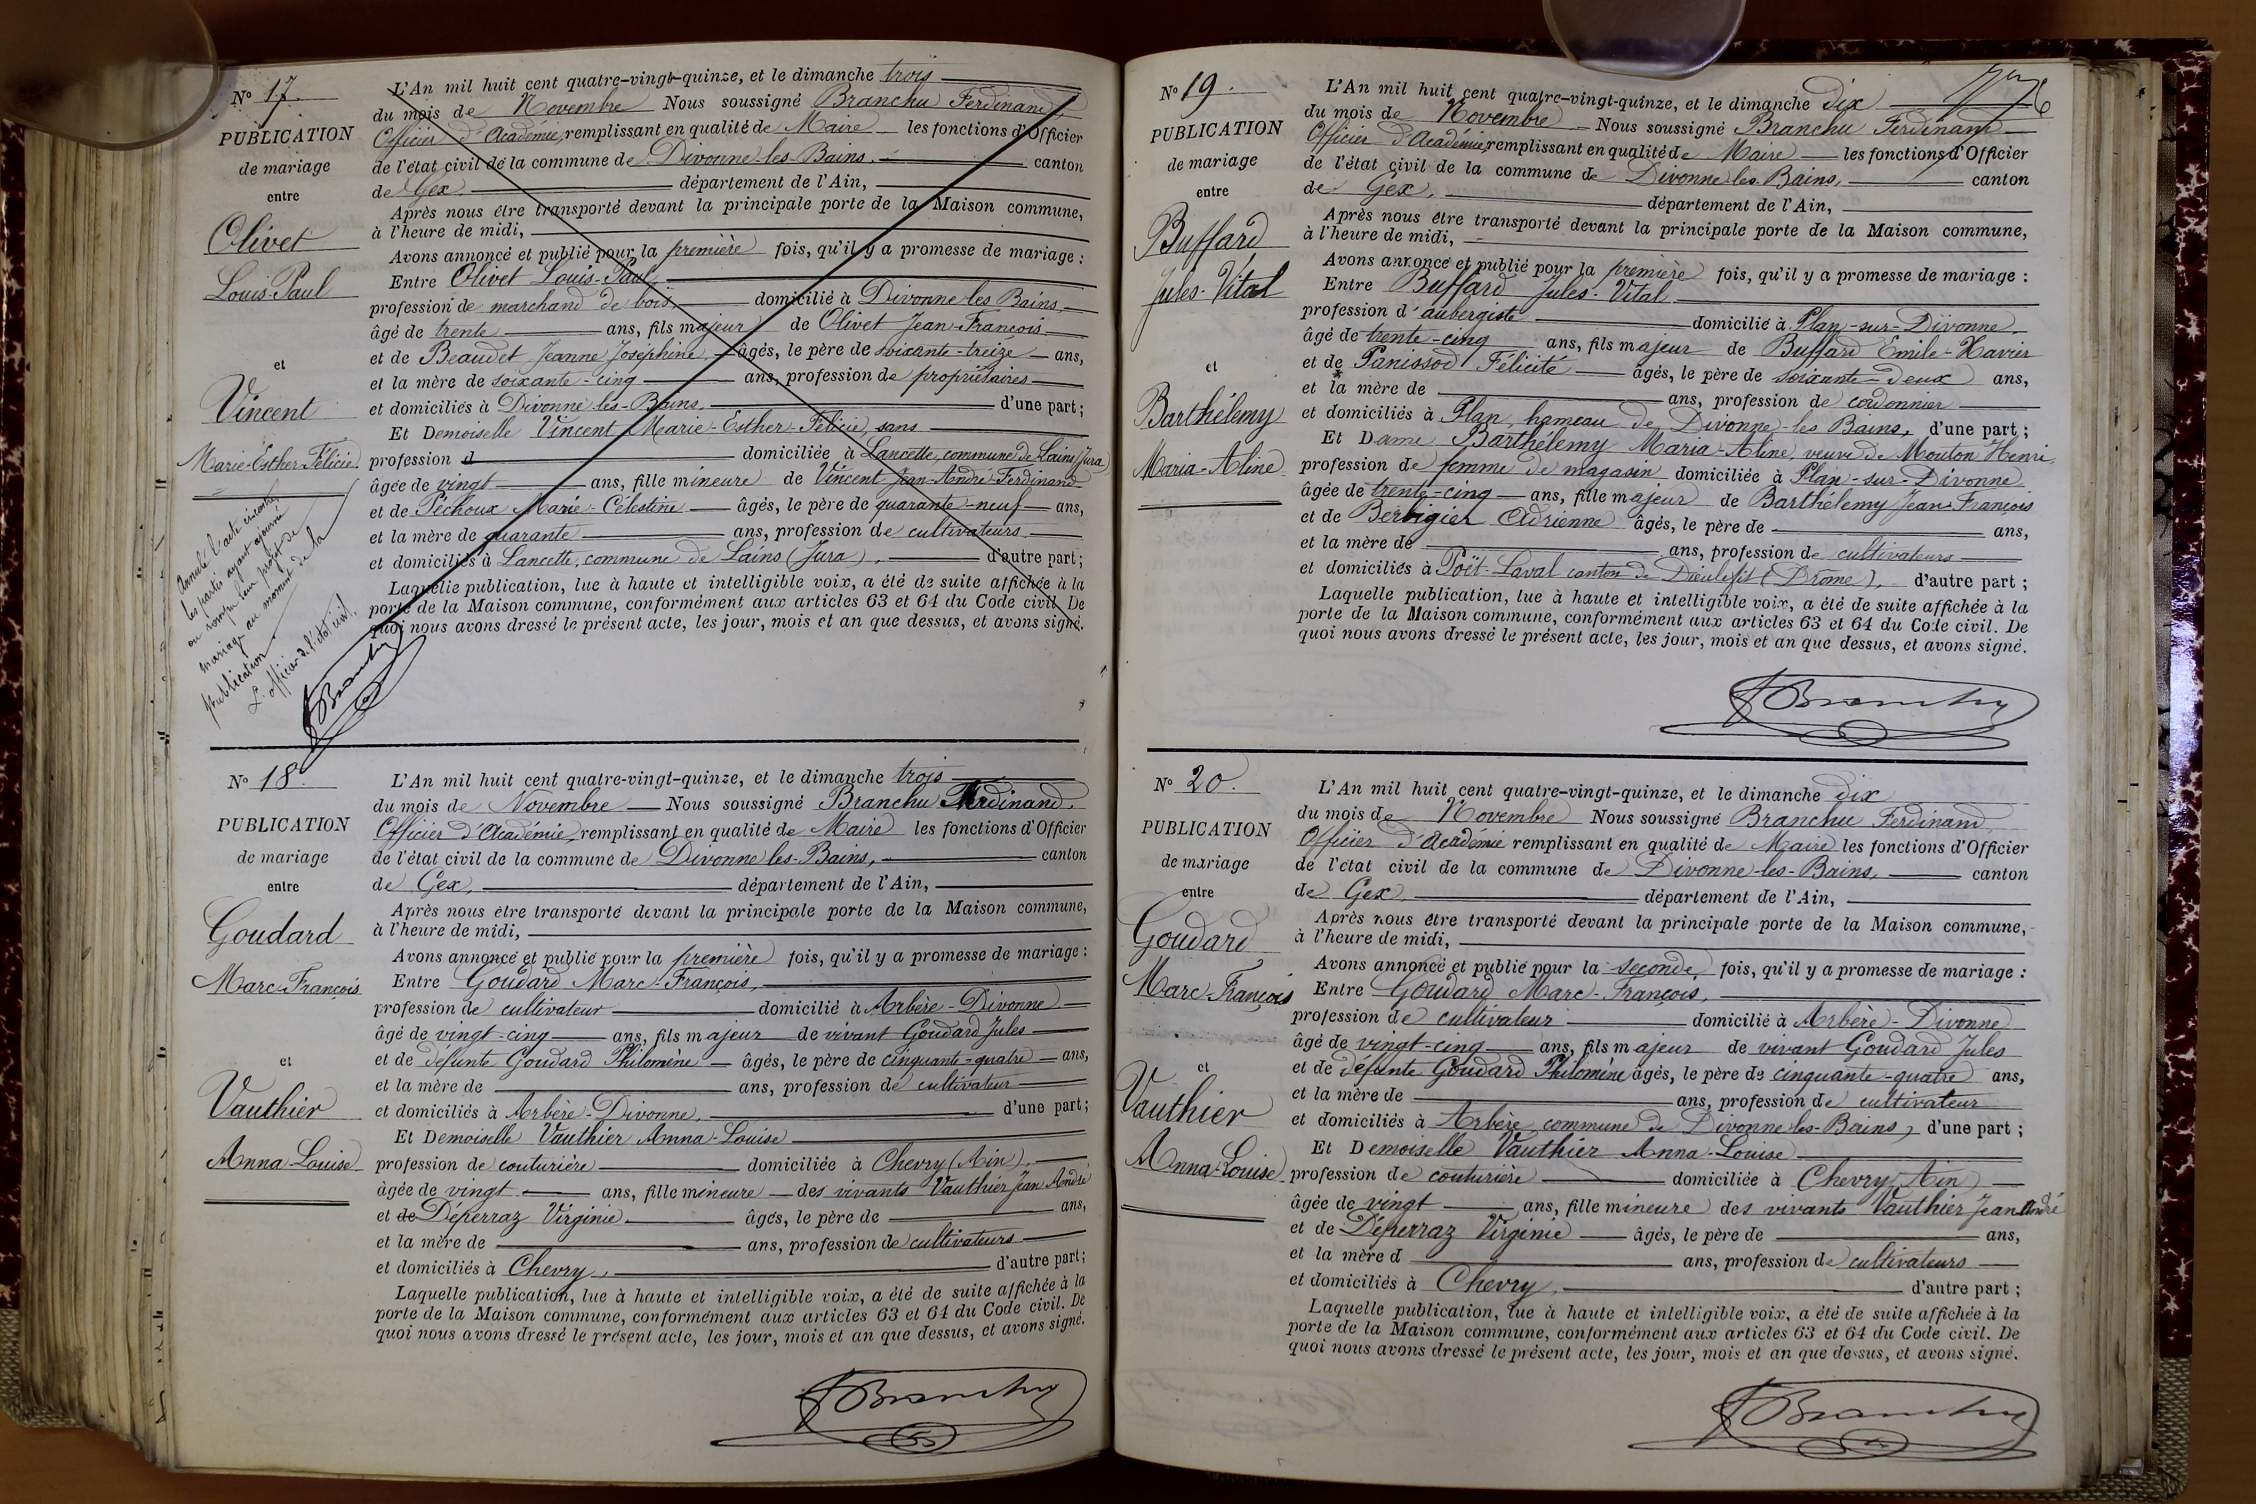 N° 17.
PUBLICATION
de mariage
entre
Olivet
Louis-Paul
et
Vincent
Marie-Esther-Félicie.
Annulé l'acte ci-contre,
les parties ayant ajourné
ou rompu leur projet de
mariage au moment de la
publication
L'officier de l'état civil.
Branchu
L'An mil huit cent quatre-vingt-quinze, et le dimanche trois
du mois de Novembre Nous soussigné Branchu Ferdinand,
Officier d'Académie, remplissant en qualité de Maire les fonctions d'Officier
de l'état civil de la commune de Divonne-les-Bains, canton
de Gex, département de l'Ain,
Après nous être transporté devant la principale porte de la Maison commune,
à l'heure de midi,
Avons annoncé et publié pour la première fois, qu'il y a promesse de mariage :
Entre Olivet Louis-Paul
profession de marchand de bois, domicilié à Divonne-les-Bains,
âgé de trente ans, fils majeur de Olivet Jean-François
et de Beaudet Jeanne Joséphine, âgés, le père de soixante-treize ans,
et la mère de soixante-cinq ans, profession de propriétaires
et domiciliés à Divonne-les-Bains. d'une part ;
Et Demoiselle Vincent Marie-Esther-Félicie, sans
profession d domiciliée à Lancette, commune de Lains (Jura)
âgée de vingt ans, fille mineure de Vincent Jean-André-Ferdinand
et de Péchoux Marie-Célestine âgés, le père de quarante-neuf ans,
et la mère de quarante ans, profession de cultivateurs
et domiciliés à Lancette, commune de Lains (Jura), d'autre part ;
Laquelle publication, lue à haute et intelligible voix, a été de suite affichée à la
porte de la Maison commune, conformément aux articles 63 et 64 du Code civil. De
quoi nous avons dressé le présent acte, les jour, mois et an que dessus, et avons signé.
N° 18.
PUBLICATION
de mariage
entre
Goudard
Marc-François
et
Vauthier
Anna-Louise
L'An mil huit cent quatre-vingt-quinze, et le dimanche trois
du mois de Novembre Nous soussigné Branchu Ferdinand,
Officier d'Académie, remplissant en qualité de Maire les fonctions d'Officier
de l'état civil de la commune de Divonne-les-Bains, canton
de Gex, département de l'Ain,
Après nous être transporté devant la principale porte de la Maison commune,
à l'heure de midi,
Avons annoncé et publié pour la première fois, qu'il y a promesse de mariage :
Entre Goudard Marc-François,
profession de cultivateur domicilié à Arbère-Divonne
âgé de vingt-cinq ans, fils majeur de vivant Goudard Jules
et de défunte Goudard Philomène âgés, le père de cinquante-quatre ans,
et la mère de ans, profession de cultivateur
et domiciliés à Arbère-Divonne, d'une part ;
Et Demoiselle Vauthier Anna-Louise
profession de couturière domiciliée à Chevry (Ain),
âgée de vingt ans, fille mineure des vivants Vauthier Jean André
et de Déperraz Virginie âgés, le père de ans,
et la mère de ans, profession de cultivateurs
et domiciliés à Chevry, d'autre part ;
Laquelle publication, lue à haute et intelligible voix, a été de suite affichée à la
porte de la Maison commune, conformément aux articles 63 et 64 du Code civil. De
quoi nous avons dressé le présent acte, les jour, mois et an que dessus, et avons signé.
Branchu
N° 19.
PUBLICATION
de mariage
entre
Buffard
Jules-Vital
et
Barthélemy
Maria-Aline
L'An mil huit cent quatre-vingt-quinze, et le dimanche dix
du mois de Novembre Nous soussigné Branchu Ferdinand
Officier d'Académie, remplissant en qualité de Maire les fonctions d'Officier
de l'état civil de la commune de Divonne-les-Bains, canton
de Gex, département de l'Ain,
Après nous être transporté devant la principale porte de la Maison commune,
à l'heure de midi,
Avons annoncé et publié pour la première fois, qu'il y a promesse de mariage :
Entre Buffard Jules-Vital
profession d'aubergiste domicilié à Plan-sur-Divonne
âgé de trente-cinq ans, fils majeur de Buffard Emile-Xavier
et de Panissod Félicité âgés, le père de soixante-deux ans,
et la mère de ans, profession de cordonnier
et domiciliés à Plan, hameau de Divonne-les-Bains, d'une part ;
Et Dame Barthélemy Maria-Aline, veuve de Mouton Henri,
profession de femme de magasin domiciliée à Plan-sur-Divonne
âgée de trente-cinq ans, fille majeur de Barthélemy Jean-François
et de Berbigier Adrienne âgés, le père de ans,
et la mère de ans, profession de cultivateurs
et domiciliés à Poët-Laval canton de Dieulefit (Drôme), d'autre part ;
Laquelle publication, lue à haute et intelligible voix, a été de suite affichée à la
porte de la Maison commune, conformément aux articles 63 et 64 du Code civil. De
quoi nous avons dressé le présent acte, les jour, mois et an que dessus, et avons signé.
Branchu
N° 20.
PUBLICATION
de mariage
entre
Goudard
Marc-François
et
Vauthier
Anna-Louise
L'An mil huit cent quatre-vingt-quinze, et le dimanche dix
du mois de Novembre Nous soussigné Branchu Ferdinand
Officier d'Académie remplissant en qualité de Maire les fonctions d'Officier
de l'état civil de la commune de Divonne-les-Bains, canton
de Gex département de l'Ain,
Après nous être transporté devant la principale porte de la Maison commune,
à l'heure de midi,
Avons annoncé et publié pour la seconde fois, qu'il y a promesse de mariage :
Entre Goudard Marc-François,
profession de cultivateur domicilié à Arbère-Divonne
âgé de vingt-cinq ans, fils majeur de vivant Goudard Jules
et de défunte Goudard Philomène âgés, le père de cinquante-quatre ans,
et la mère de ans, profession de cultivateur
et domiciliés à Arbère commune de Divonne-les-Bains, d'une part ;
Et Demoiselle Vauthier Anna-Louise
profession de couturière domiciliée à Chevry (Ain)
âgée de vingt ans, fille mineure des vivants Vauthier Jean André
et de Déperraz Virginie âgés, le père de ans,
et la mère d ans, profession de cultivateurs
et domiciliés à Chevry, d'autre part ;
Laquelle publication, lue à haute et intelligible voix, a été de suite affichée à la
porte de la Maison commune, conformément aux articles 63 et 64 du Code civil. De
quoi nous avons dressé le présent acte, les jour, mois et an que dessus, et avons signé.
Branchu